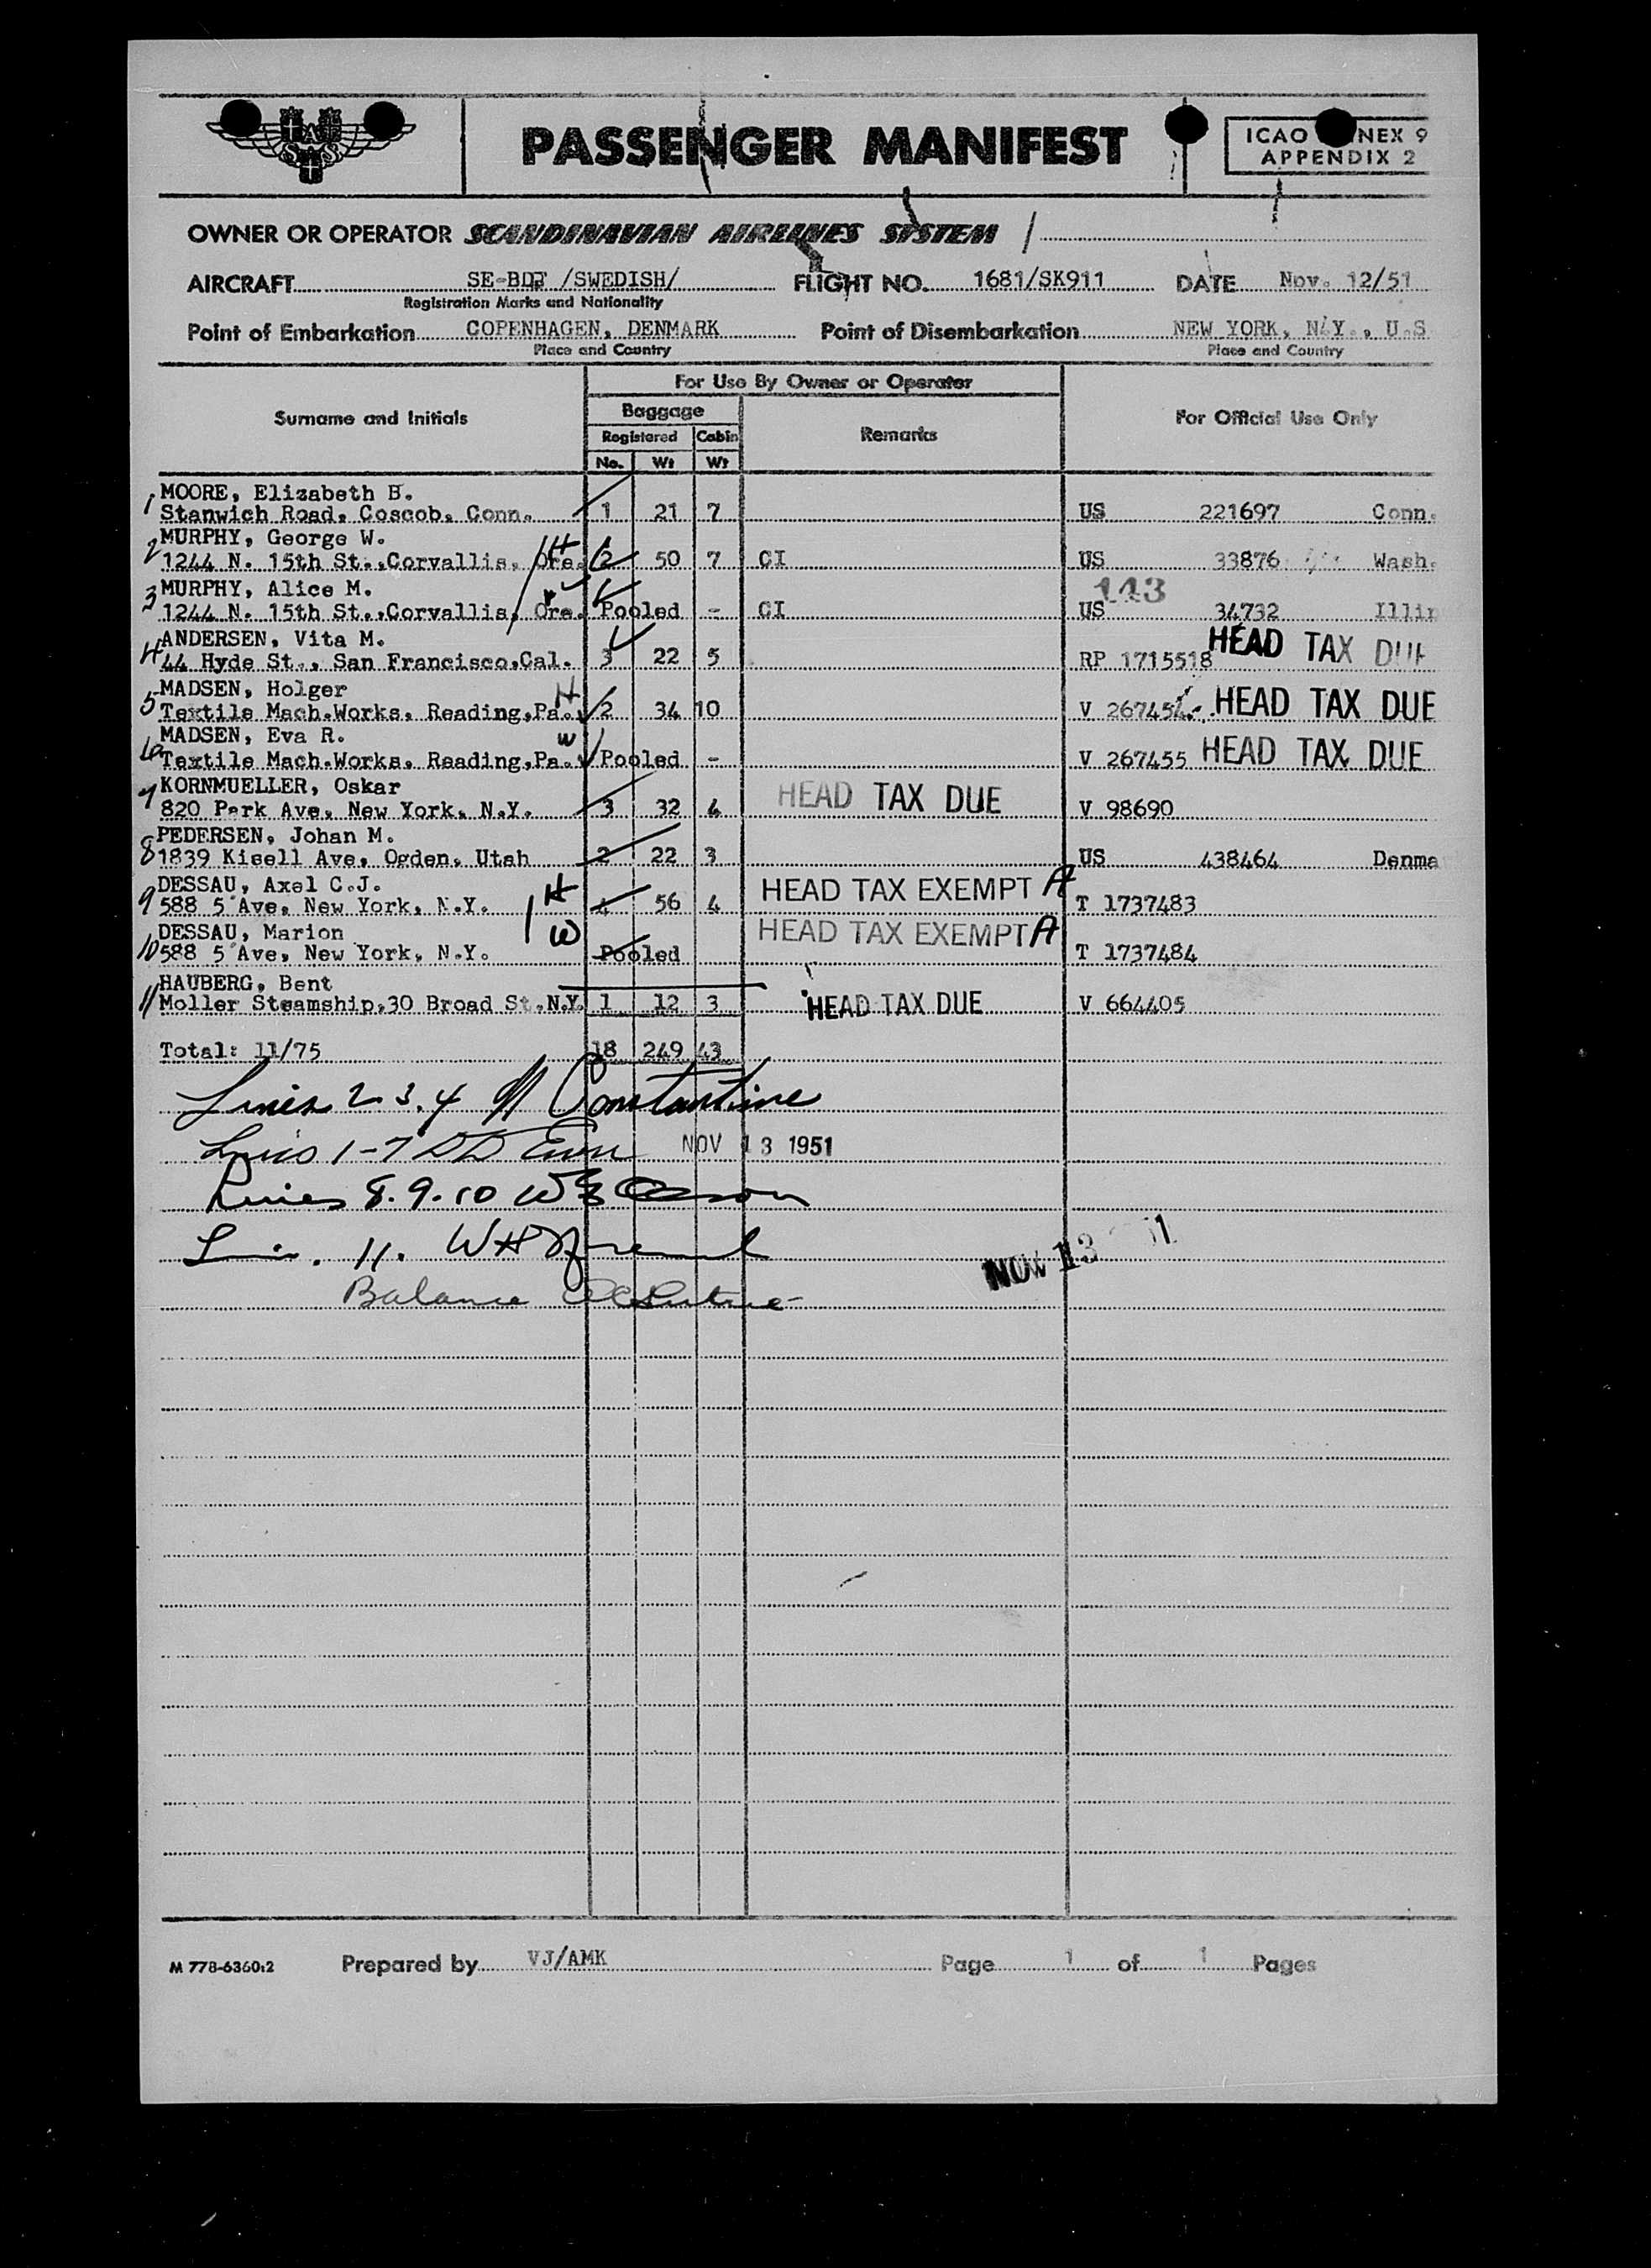 SAS
PASSENGER MANIFEST
ICAO NEX 9
APPENDIX 2
OWNER OR OPERATOR SCANDINAVIAN AIRLINES SYSTEM /
AIRCRAFT SE-BDF /SWEDISH/ FLIGHT NO. 1681/SK911 DATE Nov. 12/51
Registration Marks and Nationality
Point of Embarkation COPENHAGEN, DENMARK Point of Disembarkation NEW YORK, N.Y., U.S
Place and Country Place and Country
For Use By Owner or Operator
Surname and Initials Baggage Remarks For Official Use Only
Registered Cabin
No. Wt Wt
1 MOORE, Elizabeth B.
Stanwich Road, Coscob, Conn. 1 21 7 US 221697 Conn.
2 MURPHY, George W.
1244 N. 15th St.,Corvallis, Ore. H 2 50 7 CI US 33876 Wash.
3 MURPHY, Alice M. 143
1244 N. 15th St.,Corvallis, Ore. Pooled - CI US 34732 Illin
4 ANDERSEN, Vita M. HEAD TAX DUE
44 Hyde St., San Francisco,Cal. 3 22 5 RP 1715518
5 MADSEN, Holger H
Textile Mach.Works, Reading,Pa. 2 34 10 V 267454 HEAD TAX DUE
6 MADSEN, Eva R. W
Textile Mach.Works, Reading,Pa. Pooled - V 267455 HEAD TAX DUE
7 KORNMUELLER, Oskar
820 Park Ave, New York, N.Y. 3 32 4 HEAD TAX DUE V 98690
8 PEDERSEN, Johan M.
1839 Kisell Ave, Ogden, Utah 2 22 3 US 438464 Denma
9 DESSAU, Axel C.J. H HEAD TAX EXEMPT A
588 5 Ave, New York, N.Y. 4 56 4 T 1737483
10 DESSAU, Marion W HEAD TAX EXEMPT A
588 5 Ave, New York, N.Y. Pooled T 1737484
11 HAUBERG, Bent
Moller Steamship,30 Broad St.,N.Y. 1 12 3 HEAD TAX DUE V 664405
Total: 11/75 18 249 43
Lines 2 3.4 Constantine
Lines 1-7 NOV 13 1951
Lines 8.9.10
11. WH
NOV 13 51
Balance
M 778-6360:2 Prepared by VJ/AMK Page 1 of 1 Pages